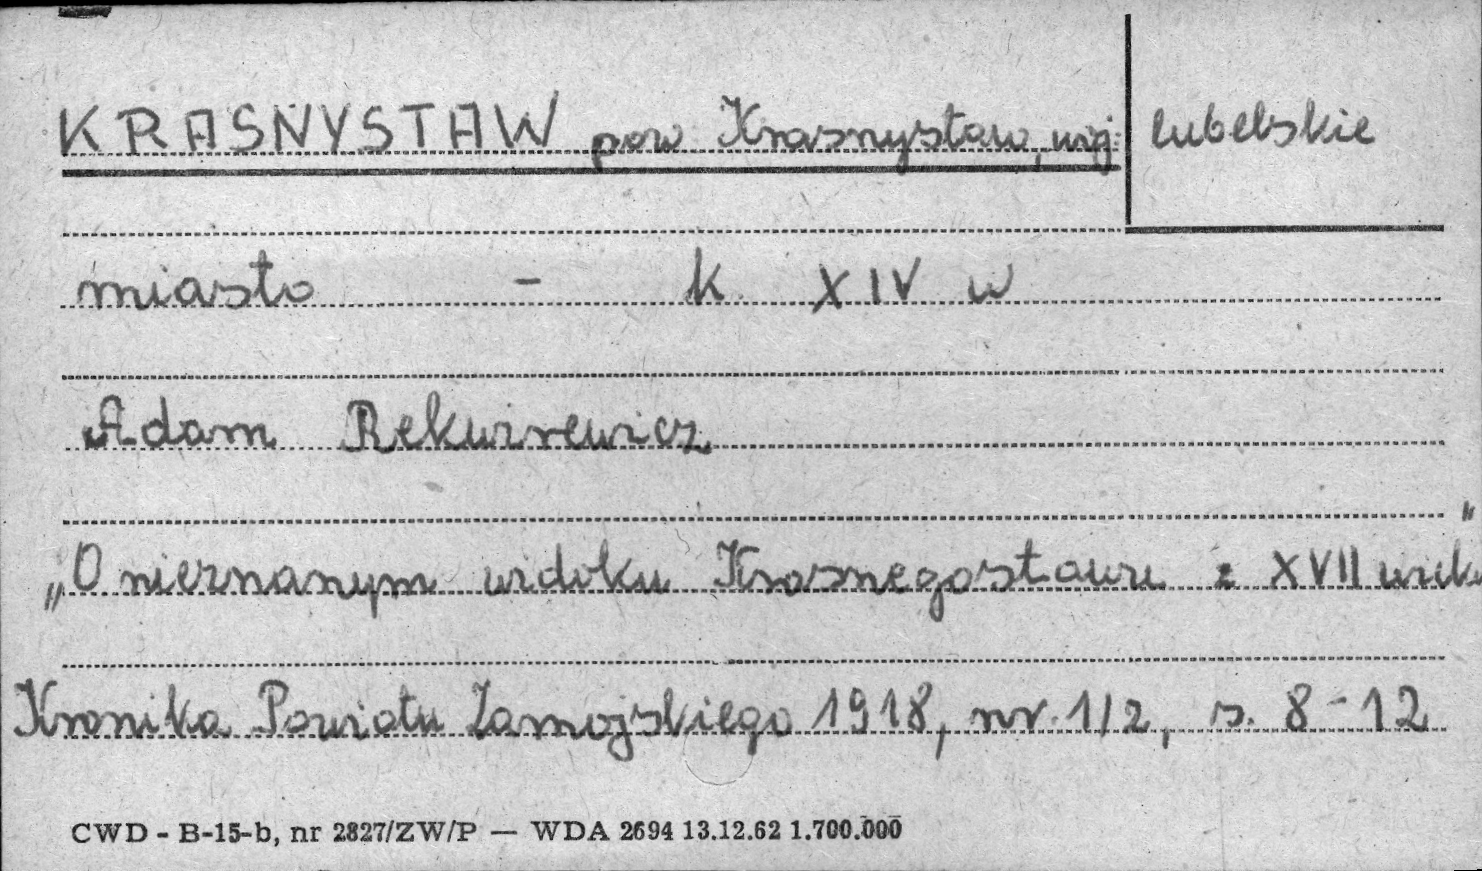 KRASNYSTAW pow Krasnystaw, woj: lubelskie
miasto - k XIV w
Adam Rekwirewicz
„O nieznanym widoku Krasnegostawu z XVII wieku"
Kronika Powiatu Zamojskiego 1918, nr. 1/2, s. 8-12
CWD - B-15-b, nr 2827/ZW/P — WDA 2694 13.12.62 1.700.000